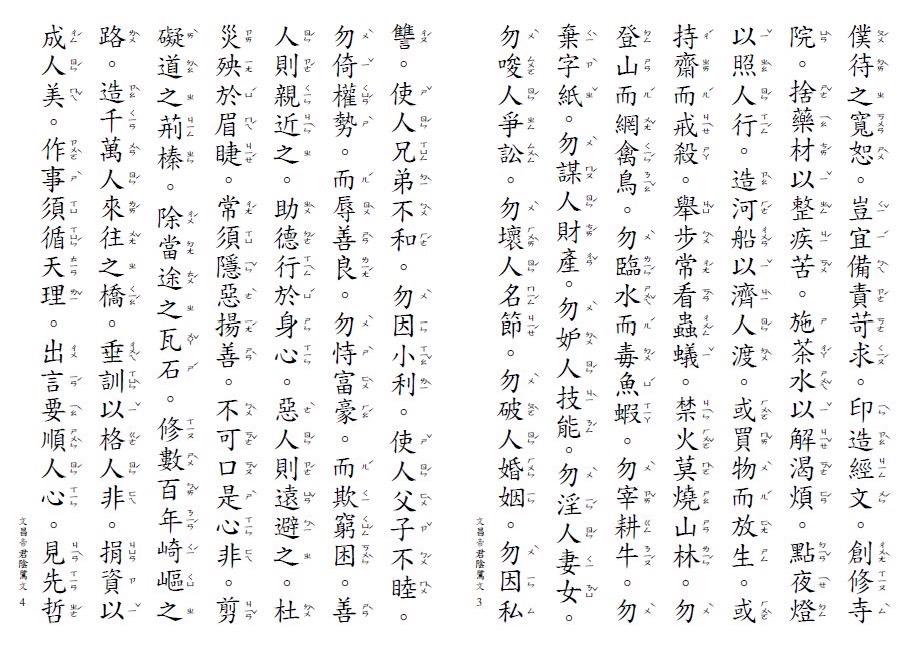 僕待之寬恕。豈宜備責苛求。印造經文。創修寺
院。捨藥材以整疾苦。施茶水以解渴煩。點夜燈
以照人行。造河船以濟人渡。或買物而放生。或
持齋而戒殺。舉步常看蟲蟻。禁火莫燒山林。勿
登山而網禽鳥。勿臨水而毒魚蝦。勿宰耕牛。勿
棄字紙。勿謀人財產。勿妒人技能。勿淫人妻女。
勿唆人爭訟。勿壞人名節。勿破人婚姻。勿因私
文昌帝君陰騭文 3
讐。使人兄弟不和。勿因小利。使人父子不睦。
勿倚權勢。而辱善良。勿恃富豪。而欺窮困。善
人則親近之。助德行於身心。惡人則遠避之。杜
災殃於眉睫。常須隱惡揚善。不可口是心非。剪
礙道之荊榛。除當途之瓦石。修數百年崎嶇之
路。造千萬人來往之橋。垂訓以格人非。捐資以
成人美。作事須循天理。出言要順人心。見先哲
文昌帝君陰騭文 4